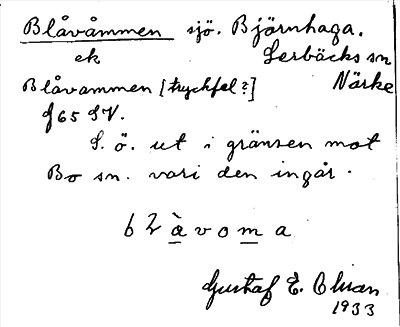 Blåvåmmen sjö. Björnhaga.
ek Lerbäcks sn
Blåvammen [tryckfel?] Närke
J65 SV.
S. ö. ut i gränsen mot
Bo sn. vari den ingår.
bLàvoma
Gustaf E. Olsson
1933